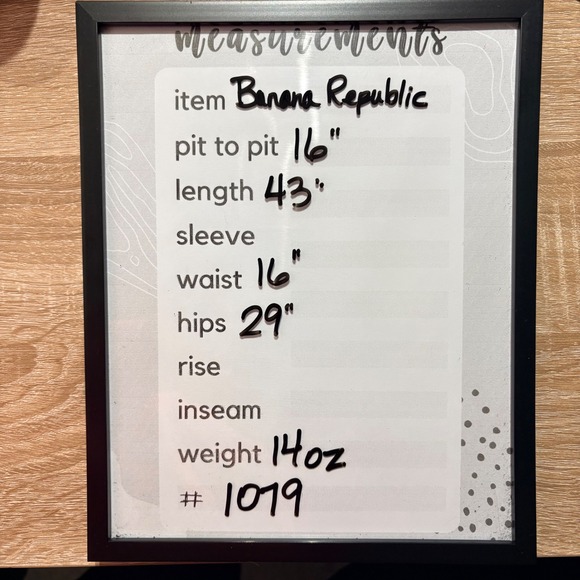 measurements
item Banana Republic
pit to pit 16"
length 43"
sleeve
waist 16"
hips 29"
rise
inseam
weight 14oz
# 1079